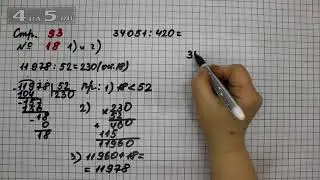 4 – 5 КЛ
Стр. 93
№ 18 1) и 2)
34051 : 420 =
11978 : 52 = 230 (ост. 18)
11978 | 52
104 | 230
157
156
18
0
18
Пр.: 1) 18 < 52
2)
230
52
460
115
11960
3) 11960 + 18 =
= 11978